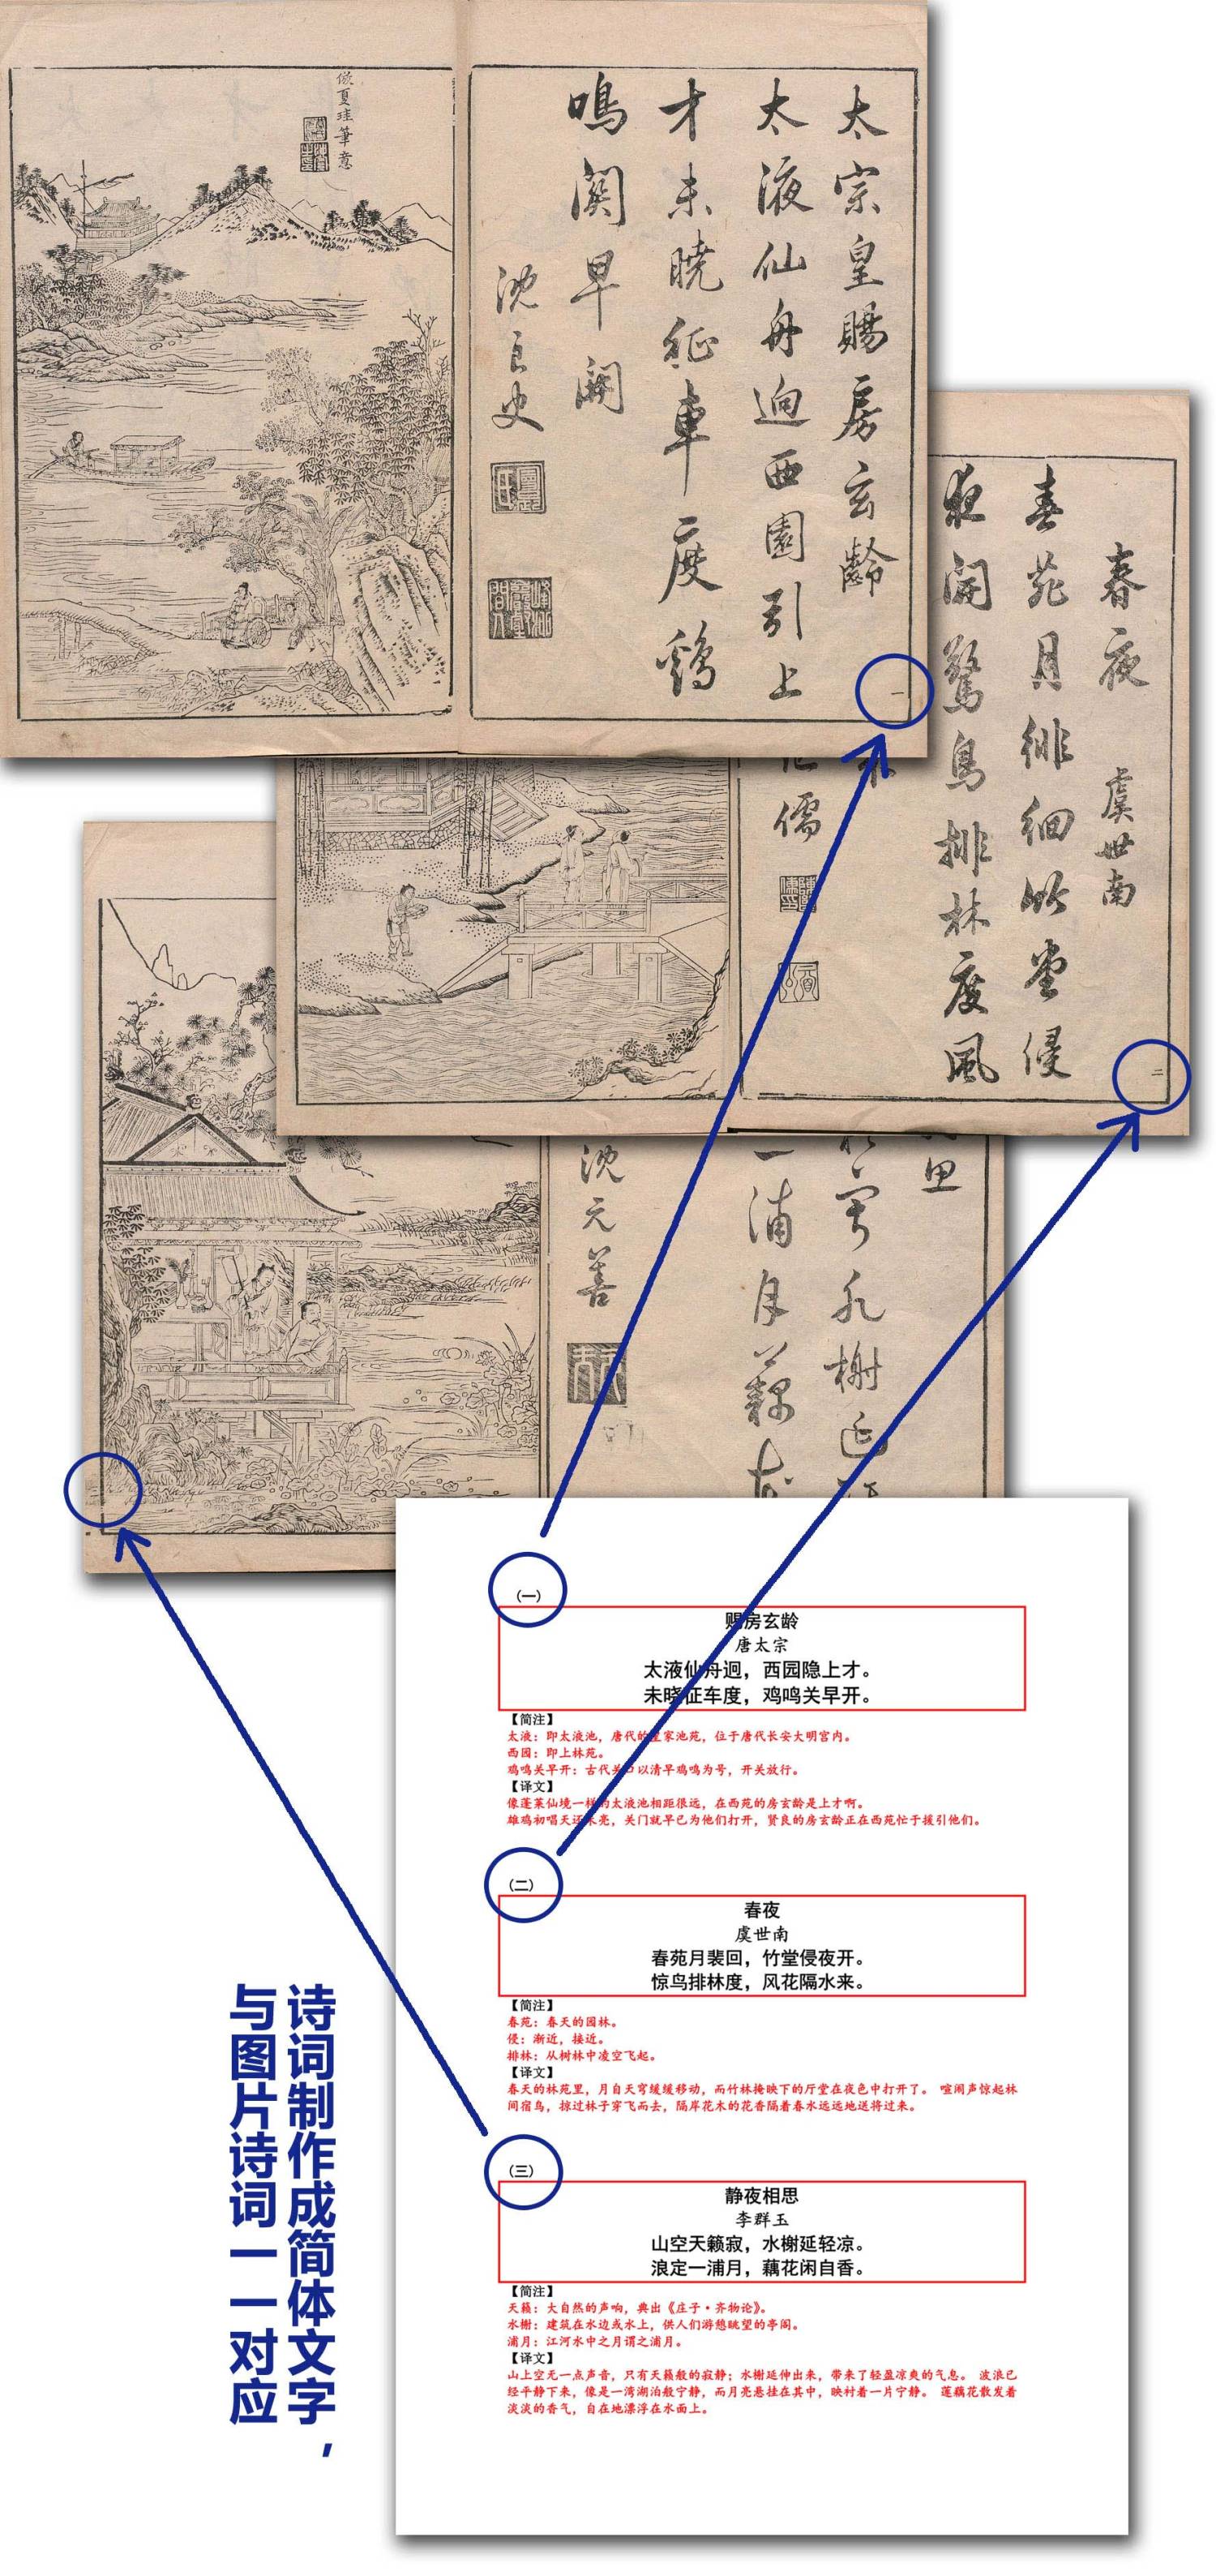 倣夏珪筆意
太宗皇賜房玄齡
太液仙舟逈西園引上
才未曉征車度鷄
鳴関早闢
沈良史
一
春夜
虞世南
春苑月徘徊竹堂侵
夜開驚鳥排林度風
儒
二
水榭延
一浦月藕花
沈元善
（一）
赐房玄龄
唐太宗
太液仙舟迥，西园隐上才。
未晓征车度，鸡鸣关早开。
【简注】
太液：即太液池，唐代的皇家池苑，位于唐代长安大明宫内。
西园：即上林苑。
鸡鸣关早开：古代关口以清早鸡鸣为号，开关放行。
【译文】
像蓬莱仙境一样的太液池相距很远，在西苑的房玄龄是上才啊。
雄鸡初唱天还未亮，关门就早已为他们打开，贤良的房玄龄正在西苑忙于援引他们。
（二）
春夜
虞世南
春苑月裴回，竹堂侵夜开。
惊鸟排林度，风花隔水来。
【简注】
春苑：春天的园林。
侵：渐近，接近。
排林：从树林中凌空飞起。
【译文】
春天的林苑里，月自天穹缓缓移动，而竹林掩映下的厅堂在夜色中打开了。 喧闹声惊起林
间宿鸟，掠过林子穿飞而去，隔岸花木的花香隔着春水远远地送将过来。
（三）
静夜相思
李群玉
山空天籁寂，水榭延轻凉。
浪定一浦月，藕花闲自香。
【简注】
天籁：大自然的声响，典出《庄子·齐物论》。
水榭：建筑在水边或水上，供人们游憩眺望的亭阁。
浦月：江河水中之月谓之浦月。
【译文】
山上空无一点声音，只有天籁般的寂静；水榭延伸出来，带来了轻盈凉爽的气息。 波浪已
经平静下来，像是一湾湖泊般宁静，而月亮悬挂在其中，映衬着一片宁静。 莲藕花散发着
淡淡的香气，自在地漂浮在水面上。
诗词制作成简体文字，
与图片诗词一一对应